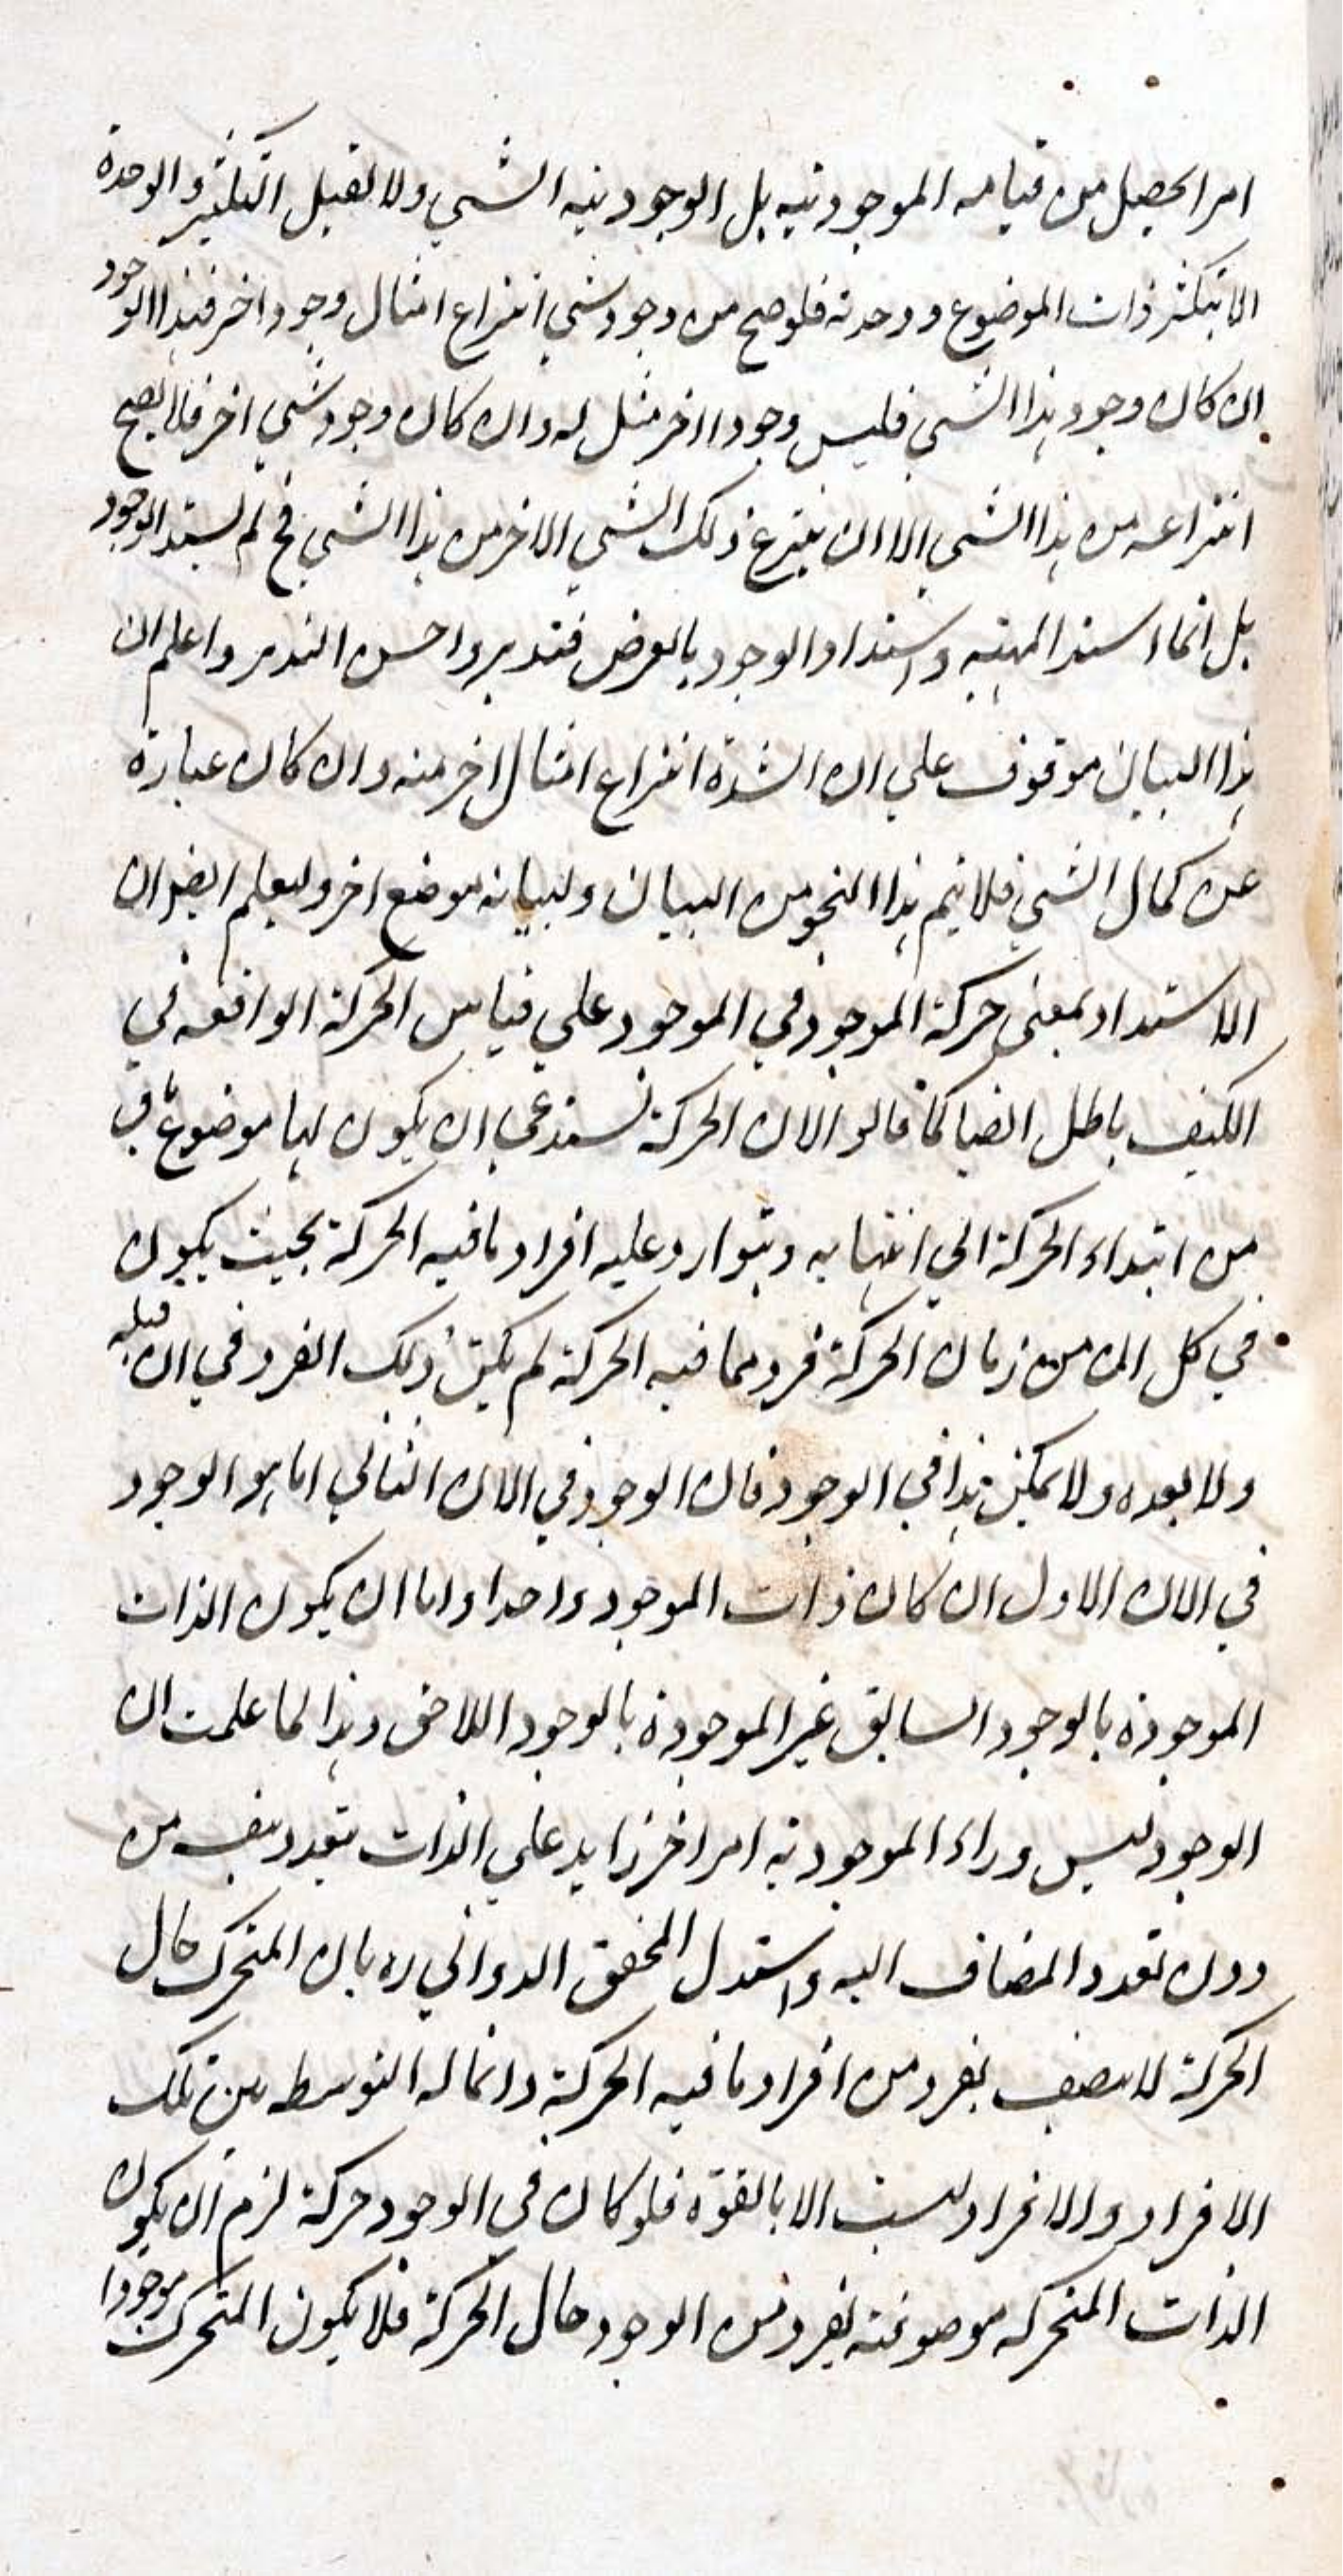 امرا يحصل من قيامه الموجودية بل الوجود نفسه الشي ولا يقبل التكثير والوحدة
الا بتكثر ذات الموضوع ووحدته فلو صح من وجود شي انتزاع امثال وجود اخر فهذا الوجود
ان كان وجود هذا الشي فليس وجودا اخر مثل له وان كان وجود شي اخر فلا يصح
انتزاعه من هذا الشي الا ان ينتزع ذلك الشي الاخر من هذا الشي فح لم يشتد الوجود
بل انما اشتد المهية واشتداد الوجود بالعرض فتدبر واحسن التدبر واعلم ان
هذا البيان موقوف علي ان الشدة انتزاع امثال اخر منه وان كان عبارة
عن كمال الشي فلا يتم هذا النحو من البيان ولبيانه موضع اخر وليعلم ايضا ان
الاشتداد بمعني حركة الموجود في الموجود علي قياس الحركة الواقعه في
الكيف باطل ايضا كما قالوا لان الحركة تستدعي ان يكون لها موضوع باق
من ابتداء الحركة الي انتهايه ويتوارد عليه افراد ما فيه الحركة بحيث يكون
في كل ان من زمان الحركة فرد مما فيه الحركة لم يكن ذلك الفرد في ان قبله
ولا بعده ولا يمكن هذا في الوجود فان الوجود في الان الثاني اما هو الوجود
في الان الاول ان كان ذات الموجود واحدا واما ان يكون الذات
الموجودة بالوجود السابق غير الموجودة بالوجود اللاحق وهذا لما علمت ان
الوجود ليس وراء الموجودية امر اخر زايد علي الذات يتعدد بنفسه من
دون تعدد المضاف اليه واستدل المحقق الدواني ره بان المتحرك حال
الحركة لا يتصف بفرد من افراد ما فيه الحركة وانما له التوسط بين تلك
الافراد والافراد ليست الا بالقوة فلو كان في الوجود حركة لزم ان يكون
الذات المتحركه موصوفته بفرد من الوجود حال الحركة فلا يكون المتحرك موجودا